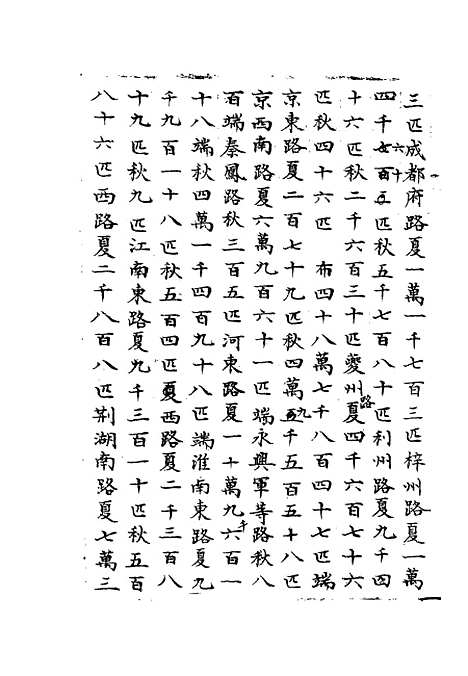 三匹成都府路夏一萬一千七百三匹梓州路夏一萬
四千七百五匹秋五千七百八十匹利州路夏九千四
六十
十六匹秋二千六百三十匹夔州夏四千六百七十六
路
匹秋四十六匹　布四十八萬七千八百四十七匹端
京東路夏二百七十九匹秋四萬五千五百五十八匹
九
京西南路夏六萬九百六十一匹端永興軍等路秋八
百端秦鳳路秋三百五匹河東路夏一十萬九六百一
千
十八端秋四萬一千四百九十八匹端淮南東路夏九
千九百一十八匹秋五百四匹西路夏二千三百八
十九匹秋九匹江南東路夏九千三百一十匹秋五百
八十六匹西路夏二千八百八匹荆湖南路夏七萬三